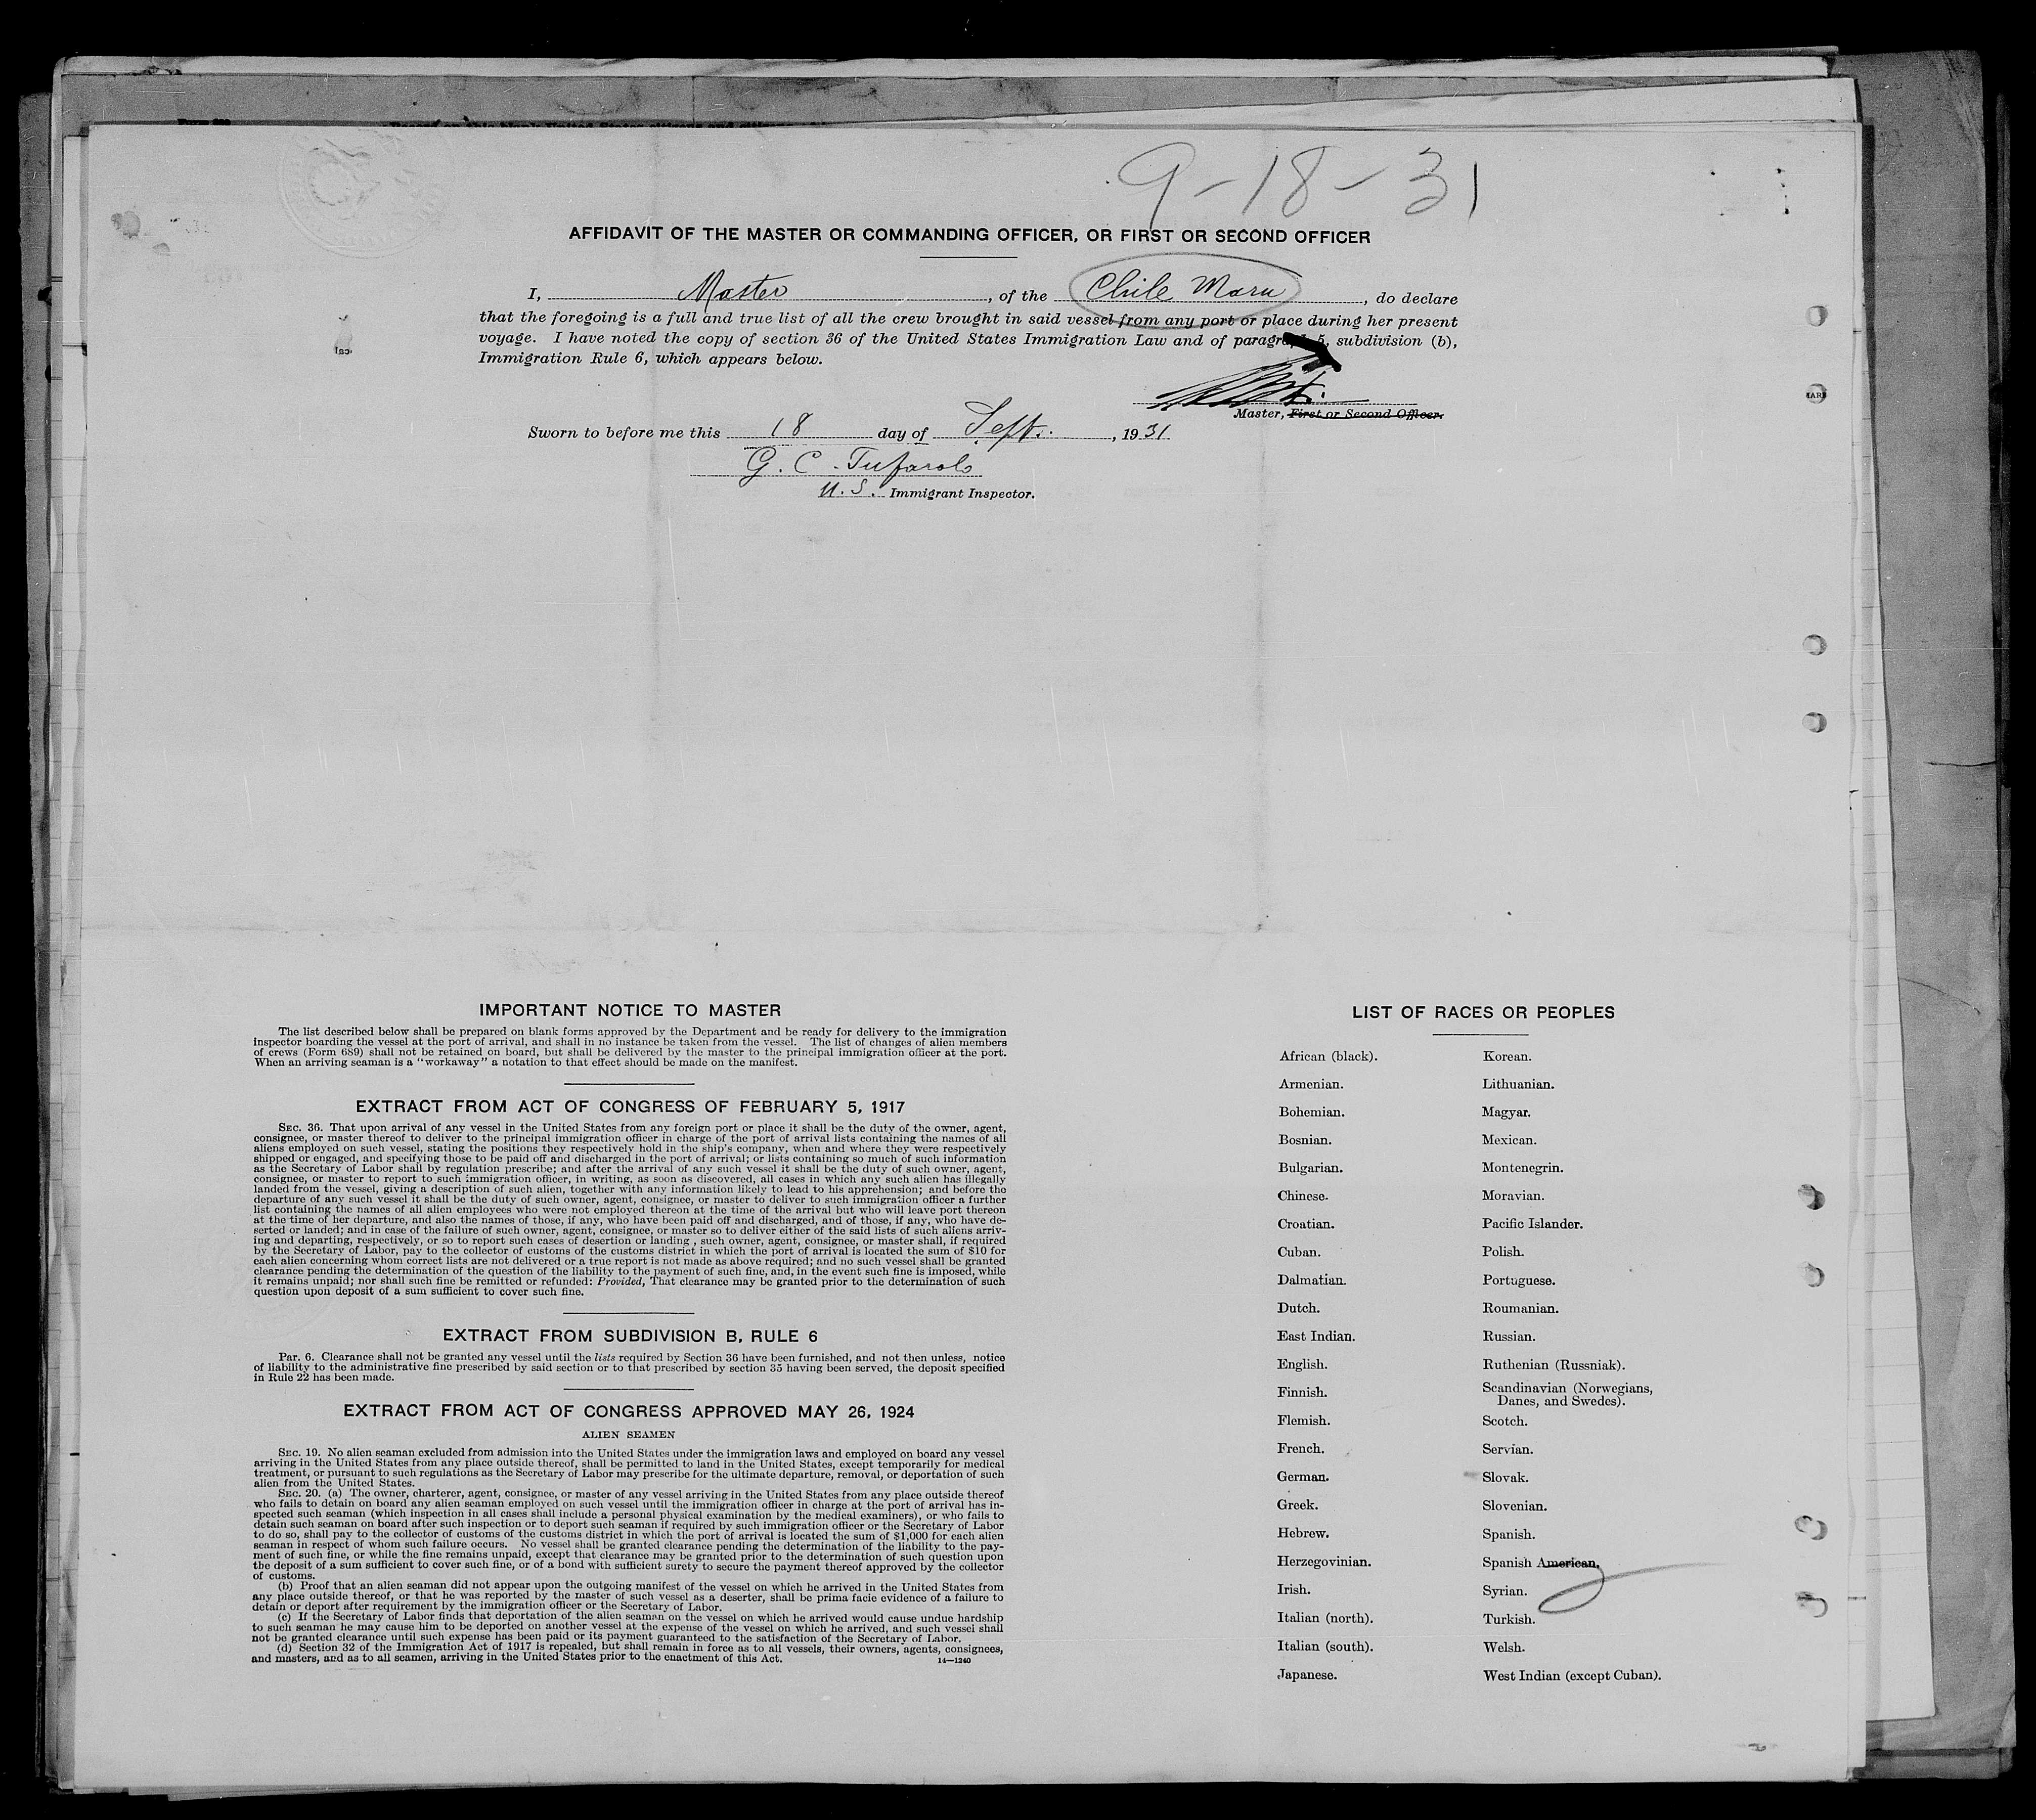 9-18-31
AFFIDAVIT OF THE MASTER OR COMMANDING OFFICER, OR FIRST OR SECOND OFFICER
I, Master, of the Chile Maru, do declare
that the foregoing is a full and true list of all the crew brought in said vessel from any port or place during her present
voyage. I have noted the copy of section 36 of the United States Immigration Law and of paragraph 5, subdivision (b),
Immigration Rule 6, which appears below.
Master, First or Second Officer.
Sworn to before me this 18 day of Sept., 1931
G. C. Tufarolo
U.S. Immigrant Inspector.
IMPORTANT NOTICE TO MASTER
The list described below shall be prepared on blank forms approved by the Department and be ready for delivery to the immigration
inspector boarding the vessel at the port of arrival, and shall in no instance be taken from the vessel. The list of changes of alien members
of crews (Form 689) shall not be retained on board, but shall be delivered by the master to the principal immigration officer at the port.
When an arriving seaman is a "workaway" a notation to that effect should be made on the manifest.
EXTRACT FROM ACT OF CONGRESS OF FEBRUARY 5, 1917
SEC. 36. That upon arrival of any vessel in the United States from any foreign port or place it shall be the duty of the owner, agent,
consignee, or master thereof to deliver to the principal immigration officer in charge of the port of arrival lists containing the names of all
aliens employed on such vessel, stating the positions they respectively hold in the ship's company, when and where they were respectively
shipped or engaged, and specifying those to be paid off and discharged in the port of arrival; or lists containing so much of such information
as the Secretary of Labor shall by regulation prescribe; and after the arrival of any such vessel it shall be the duty of such owner, agent,
consignee, or master to report to such immigration officer, in writing, as soon as discovered, all cases in which any such alien has illegally
landed from the vessel, giving a description of such alien, together with any information likely to lead to his apprehension; and before the
departure of any such vessel it shall be the duty of such owner, agent, consignee, or master to deliver to such immigration officer a further
list containing the names of all alien employees who were not employed thereon at the time of the arrival but who will leave port thereon
at the time of her departure, and also the names of those, if any, who have been paid off and discharged, and of those, if any, who have de-
serted or landed; and in case of the failure of such owner, agent, consignee, or master so to deliver either of the said lists of such aliens arriv-
ing and departing, respectively, or so to report such cases of desertion or landing , such owner, agent, consignee, or master shall, if required
by the Secretary of Labor, pay to the collector of customs of the customs district in which the port of arrival is located the sum of $10 for
each alien concerning whom correct lists are not delivered or a true report is not made as above required; and no such vessel shall be granted
clearance pending the determination of the question of the liability to the payment of such fine, and, in the event such fine is imposed, while
it remains unpaid; nor shall such fine be remitted or refunded: Provided, That clearance may be granted prior to the determination of such
question upon deposit of a sum sufficient to cover such fine.
EXTRACT FROM SUBDIVISION B, RULE 6
Par. 6. Clearance shall not be granted any vessel until the lists required by Section 36 have been furnished, and not then unless, notice
of liability to the administrative fine prescribed by said section or to that prescribed by section 35 having been served, the deposit specified
in Rule 22 has been made.
EXTRACT FROM ACT OF CONGRESS APPROVED MAY 26, 1924
ALIEN SEAMEN
SEC. 19. No alien seaman excluded from admission into the United States under the immigration laws and employed on board any vessel
arriving in the United States from any place outside thereof, shall be permitted to land in the United States, except temporarily for medical
treatment, or pursuant to such regulations as the Secretary of Labor may prescribe for the ultimate departure, removal, or deportation of such
alien from the United States.
SEC. 20. (a) The owner, charterer, agent, consignee, or master of any vessel arriving in the United States from any place outside thereof
who fails to detain on board any alien seaman employed on such vessel until the immigration officer in charge at the port of arrival has in-
spected such seaman (which inspection in all cases shall include a personal physical examination by the medical examiners), or who fails to
detain such seaman on board after such inspection or to deport such seaman if required by such immigration officer or the Secretary of Labor
to do so, shall pay to the collector of customs of the customs district in which the port of arrival is located the sum of $1,000 for each alien
seaman in respect of whom such failure occurs. No vessel shall be granted clearance pending the determination of the liability to the pay-
ment of such fine, or while the fine remains unpaid, except that clearance may be granted prior to the determination of such question upon
the deposit of a sum sufficient to cover such fine, or of a bond with sufficient surety to secure the payment thereof approved by the collector
of customs.
(b) Proof that an alien seaman did not appear upon the outgoing manifest of the vessel on which he arrived in the United States from
any place outside thereof, or that he was reported by the master of such vessel as a deserter, shall be prima facie evidence of a failure to
detain or deport after requirement by the immigration officer or the Secretary of Labor.
(c) If the Secretary of Labor finds that deportation of the alien seaman on the vessel on which he arrived would cause undue hardship
to such seaman he may cause him to be deported on another vessel at the expense of the vessel on which he arrived, and such vessel shall
not be granted clearance until such expense has been paid or its payment guaranteed to the satisfaction of the Secretary of Labor.
(d) Section 32 of the Immigration Act of 1917 is repealed, but shall remain in force as to all vessels, their owners, agents, consignees,
and masters, and as to all seamen, arriving in the United States prior to the enactment of this Act.
14—1240
LIST OF RACES OR PEOPLES
African (black).
Armenian.
Bohemian.
Bosnian.
Bulgarian.
Chinese.
Croatian.
Cuban.
Dalmatian.
Dutch.
East Indian.
English.
Finnish.
Flemish.
French.
German.
Greek.
Hebrew.
Herzegovinian.
Irish.
Italian (north).
Italian (south).
Japanese.
Korean.
Lithuanian.
Magyar.
Mexican.
Montenegrin.
Moravian.
Pacific Islander.
Polish.
Portuguese.
Roumanian.
Russian.
Ruthenian (Russniak).
Scandinavian (Norwegians,
Danes, and Swedes).
Scotch.
Servian.
Slovak.
Slovenian.
Spanish.
Spanish American.
Syrian.
Turkish.
Welsh.
West Indian (except Cuban).